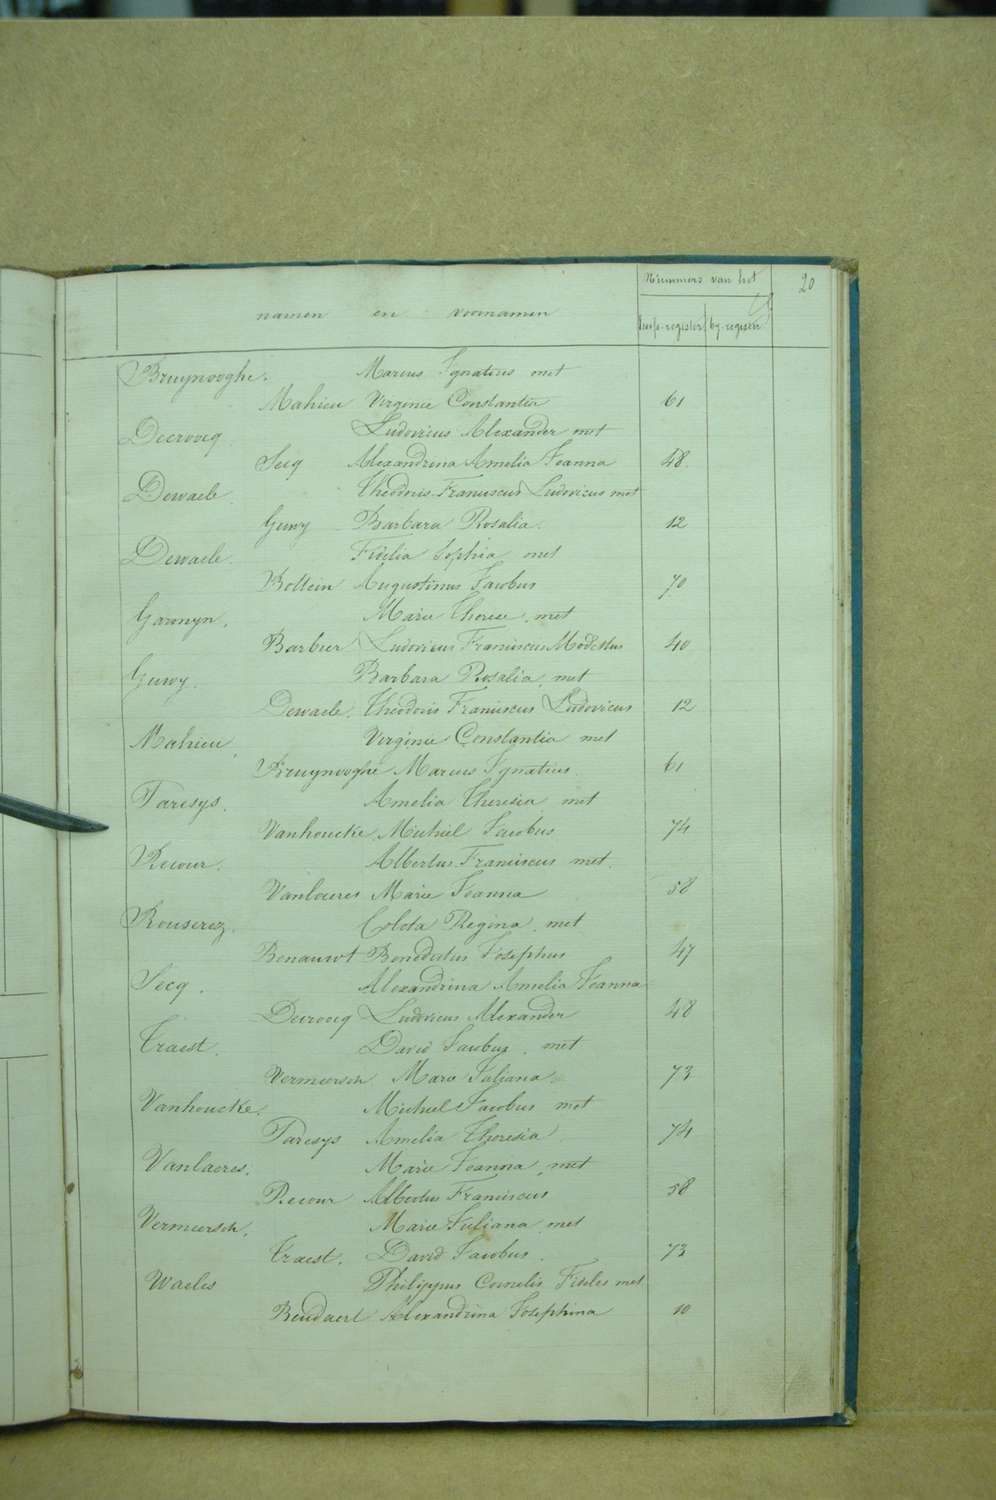 Nummers van het
20
namen en voornamen
by-register
Bruynooghe. Marcus Ignatius met
Mahieu Virginie Constantia 61
Decroocq. Ludovicus Alexander met
Secq Alexandrina Amelia Joanna 48.
Dewaele. Theodoris Franciscus Ludovicus met
Guwy Barbara Rosalia. 12
Dewaele. Fidelia Sophia met
Bollein Augustinus Jacobus 70
Garmyn. Marie Therese met
Barbier Ludovicus Franciscus Modestus 40
Guwy. Barbara Rosalia met
Dewaele. Theodoris Franciscus Ludovicus 12
Mahieu. Virginie Constantia met
Bruynooghe Marcus Ignatius. 61
Paresys. Amelia Theresia met
Vanhoucke Michiel Jacobus 74
Recour. Albertus Franciscus met.
Vanlaeres Marie Joanna 58
Rouserez. Coleta Regina met
Benauwt Benedictus Josephus 47
Secq. Alexandrina Amelia Joanna
Decroocq Ludovicus Alexander 48
Traest. David Jacobus met
Vermeersch Marie Juliana 73
Vanhoucke. Michiel Jacobus met
Paresys Amelia Theresia 74
Vanlaeres. Marie Joanna met
Recour Albertus Franciscus 58
Vermeersch. Marie Juliana met
Traest. David Jacobus. 73
Waeles Philippus Cornelis Fideles met
Beudaert Alexandrina Josephina 10